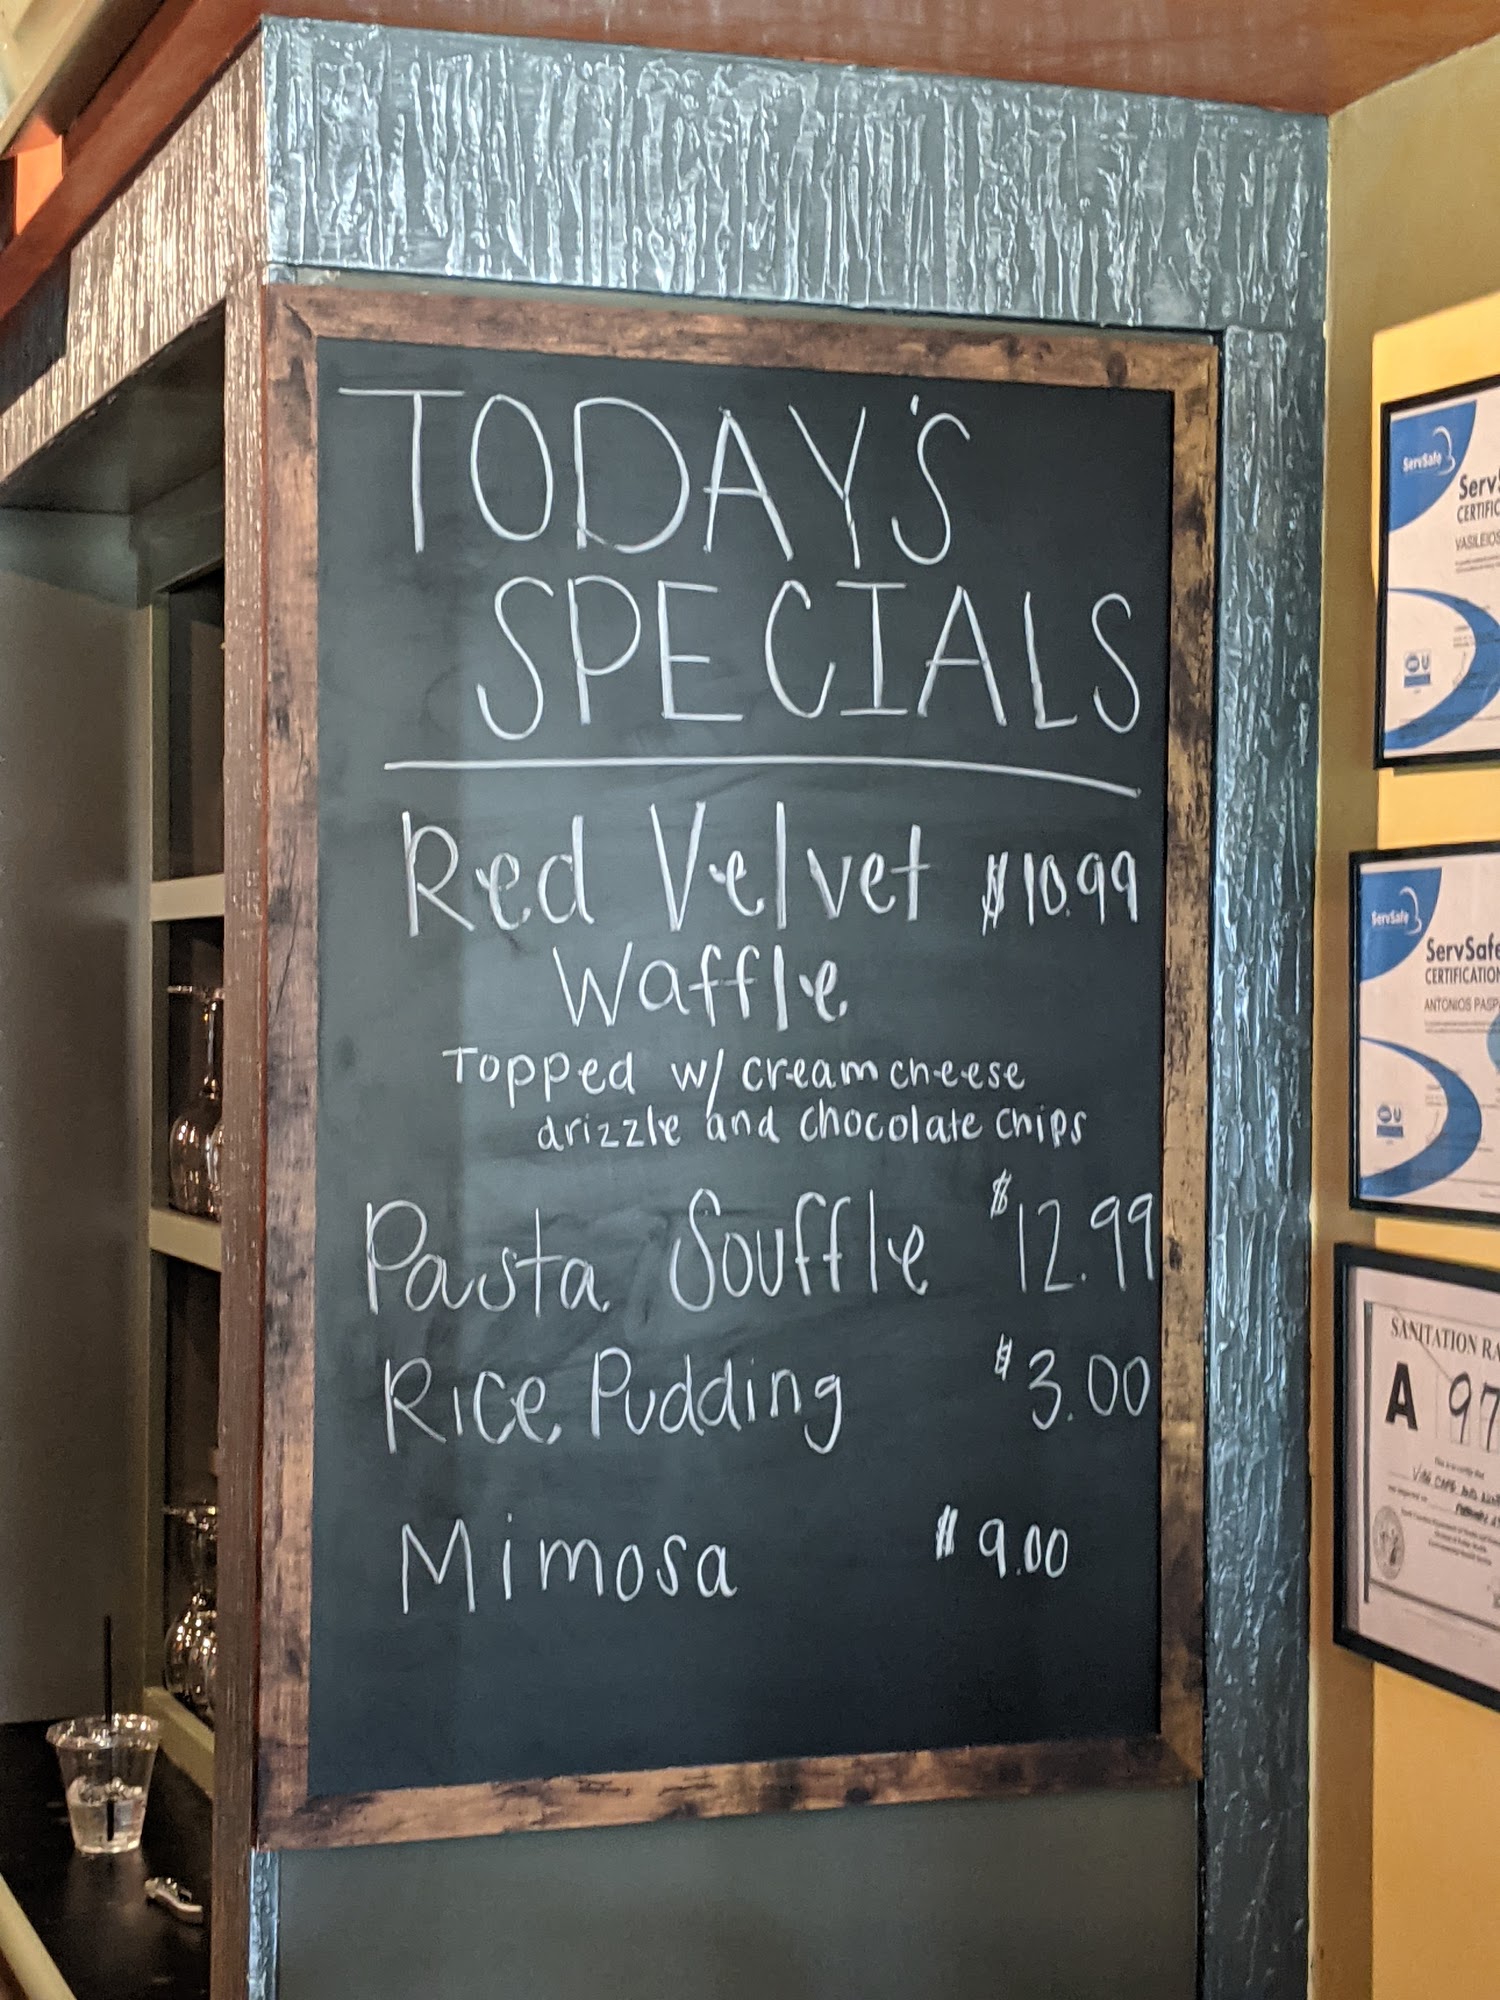 TODAY'S
SPECIALS
Red Velvet $10.99
Waffle
Topped w/ creamcheese
drizzle and chocolate chips
Pasta Souffle $12.99
Rice Pudding $3.00
Mimosa $9.00
ServSafe
CERTIFIC
VASILEIOS
ServSafe
ServSafe
CERTIFICATION
ANTONIOS PASP
SANITATION RA
A 97